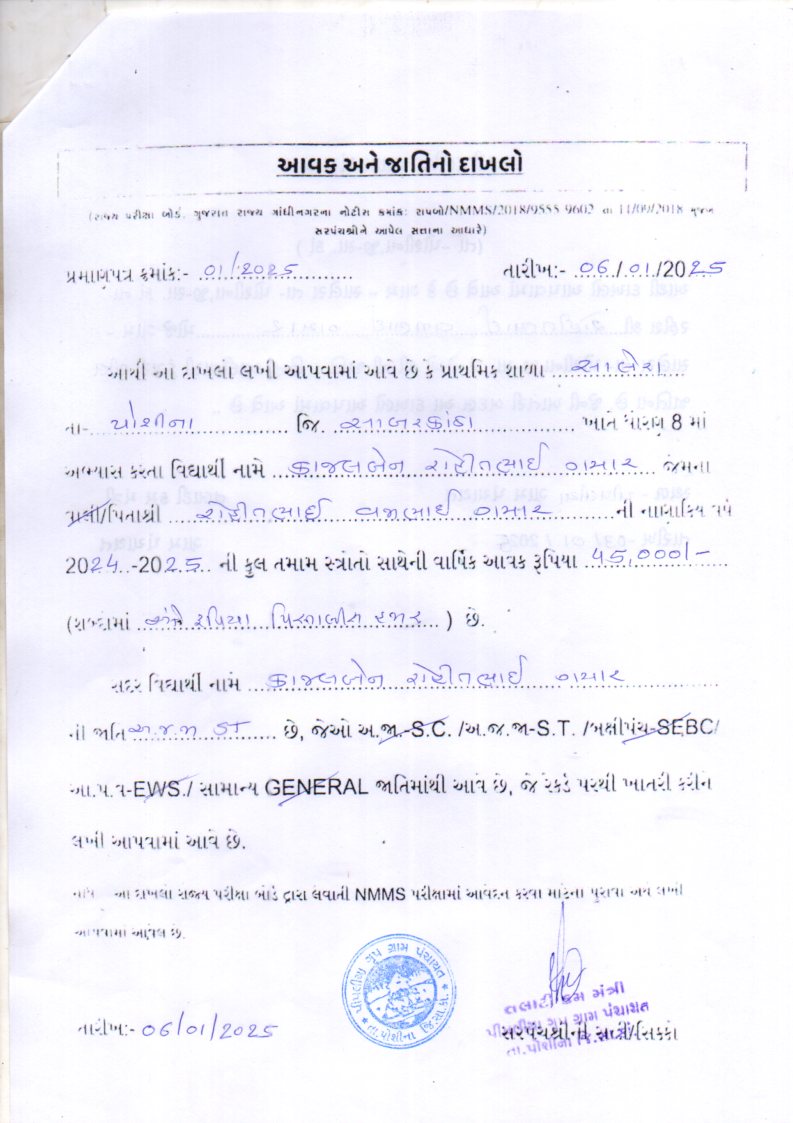 આવક અને જાતિનો દાખલો
(રાજ્ય પરીક્ષા બોર્ડ, ગુજરાત રાજ્ય ગાંધીનગરના નોટીસ ક્રમાંક: રાપબો/NMMS/2018/9555-9602 તા 11/09/2018 મુજબ
સરપંચશ્રીને આપેલ સત્તાના આધારે)
પ્રમાણપત્ર ક્રમાંક:- 01/2025 તારીખ:- 06/01/2025
આથી આ દાખલો લખી આપવામાં આવે છે કે પ્રાથમિક શાળા
તા- પોશીના જિ. સાબરકાંઠા ખાતે ધોરણ 8 માં
અભ્યાસ કરતા વિદ્યાર્થી નામે કાજલબેન રોહીતભાઈ ગમાર જેમના
વાલી/પિતાશ્રી રોહીતભાઈ ગમાર ની નાણાકિય વર્ષ
2024-2025 ની કુલ તમામ સ્ત્રોતો સાથેની વાર્ષિક આવક રૂપિયા 45,000/-
(શબ્દોમાં અંકે રૂપિયા પિસ્તાલીસ હજાર ) છે.
સદર વિદ્યાર્થી નામે કાજલબેન રોહીતભાઈ ગમાર
ની જાતિ અ.જ.જા ST છે, જેઓ અ.જા.-S.C. /અ.જ.જા-S.T. /બક્ષીપંચ-SEBC/
આ.પ.વ-EWS./ સામાન્ય GENERAL જાતિમાંથી આવે છે, જે રેકર્ડ પરથી ખાતરી કરીને
લખી આપવામાં આવે છે.
નોંધ આ દાખલો રાજ્ય પરીક્ષા બોર્ડ દ્વારા લેવાતી NMMS પરીક્ષામાં આવેદન કરવા માટેના પુરાવા અર્થે લખી
આપવામાં આવેલ છે.
તલાટી કમ મંત્રી
ગ્રુપ ગ્રામ પંચાયત
તારીખ:- 06/01/2025 સરપંચશ્રીની સહી/સિક્કો
તા.પોશીના જિ.સા.કાં.
ગ્રુપ ગ્રામ પંચાયત
તા.પોશીના જિ.સા.કાં.